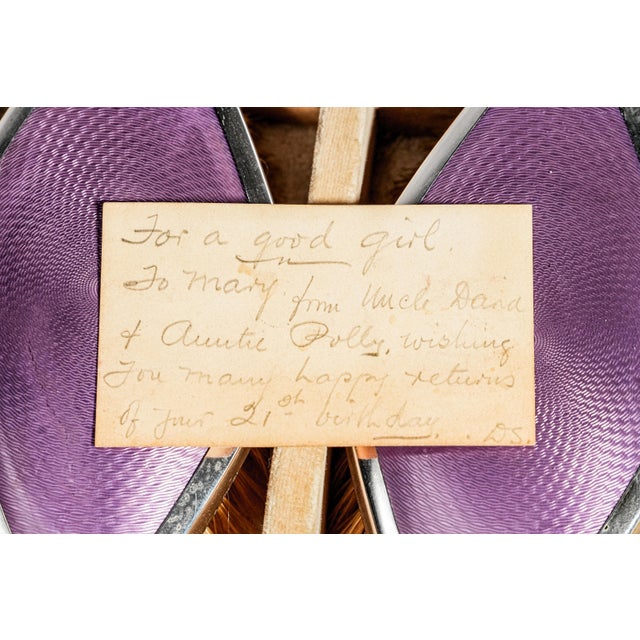 For a good girl.
To Mary from Uncle David
& Auntie Polly, wishing
you many happy returns
of your 21st birthday.
DS.